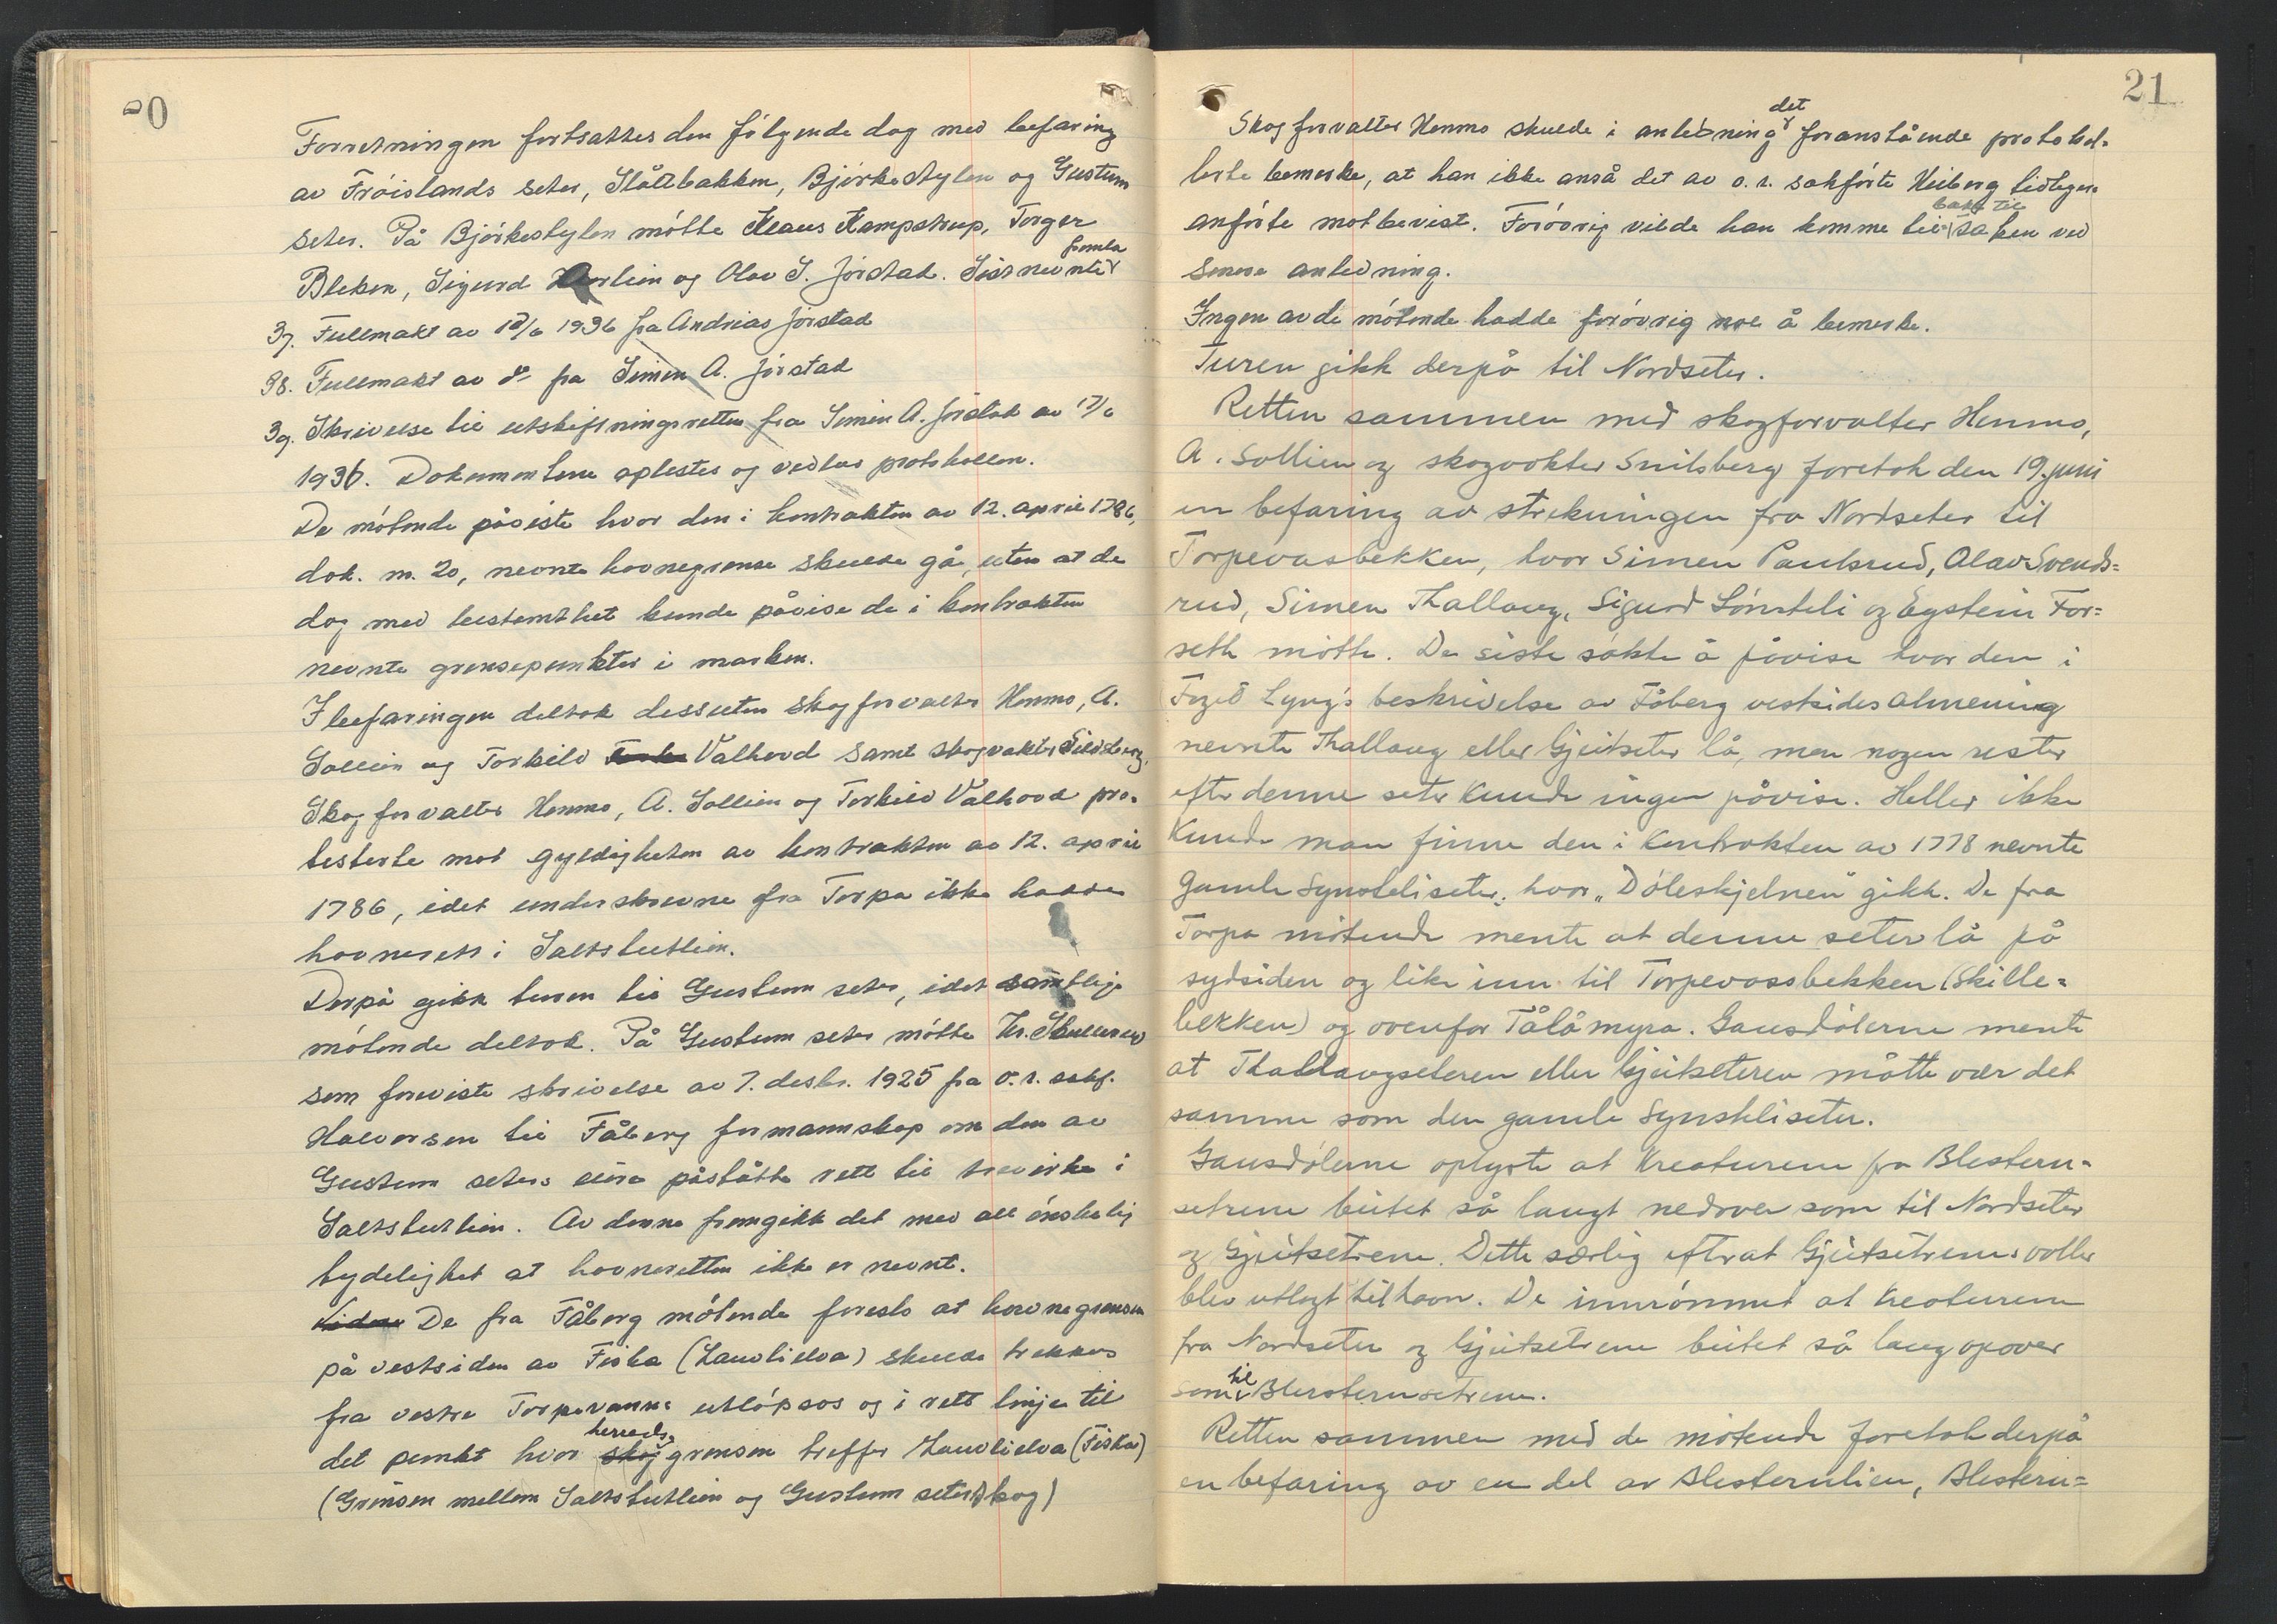 20
Forretningen fortsattes den følgende dag med befaring
av Frøislands seter, Slåttbakken, Bjørkestylen og Gustum
seter. På Bjørkestylen møtte Klaus Kampstrup, Torger
Bleken, Sigurd Aurlien og Olav S. Jørstad. Sistnevnte fremla
37. Fullmakt av 18/6 1936 fra Andreas Jørstad
38. Fullmakt av d⁰ fra Simen A. Jørstad
39. Skrivelse til utskiftningsretten fra Simen A. Jørstad av 17/6
1936. Dokumentene oplestes og vedlas protokollen.
De møtende påviste hvor den i kontrakten av 12. april 1786,
dok. nr. 20, nevnte havnegrense skulde gå, uten at de
dog med bestemthet kunde påvise de i kontrakten
nevnte grensepunkter i marken.
I befaringen deltok dessuten skogforvalter Hemmo, A.
Sollien og Torkild Valhovd samt skogvokter
Skogforvalter Hemmo, A. Sollien og Torkild Valhovd pro-
testerte mot gyldigheten av kontrakten av 12. april
1786, idet underskrevne fra Torpa ikke hadde
havnerett i Saltstutlien.
Derpå gikk turen til Gustum seter, idet samtlige
møtende deltok. På Gustum seter møtte Kr. Skullerud
som foreviste skrivelse av 7. desbr. 1925 fra o.r. sakf.
Halvorsen til Fåberg formannskap om den av
Gustum seters eiere påståtte rett til trevirke i
Saltstutlien. Av denne fremgikk det med all ønskelig
tydelighet at havneretten ikke er nevnt.
De fra Fåberg møtende foreslo at havnegrensen
på vestsiden av Fiska (Lauvlielva) skulde trekkes
fra vestre Torpevanns utløpsos og i rett linje til
det punkt hvor herredsgrensen treffer Lauvlielva (Fiska)
(Grensen mellem Saltstutlien og Gustum seterskog)
21
Skogforvalter Hemmo skulde i anledning det foranstående protokol-
lerte bemerke, at han ikke anså det av o.r. sakfører Heiberg tidligere
anførte motbevist. Forøvrig vilde han komme tilbake til saken ved
senere anledning.
Ingen av de møtende hadde forøvrig noe å bemerke.
Turen gikk derpå til Nordseter.
Retten sammen med skogforvalter Hemmo,
A. Sollien og skogvokter Snilsberg foretok den 19. juni
en befaring av strekningen fra Nordseter til
Torpevasbekken, hvor Simen Paulsrud, Olav Svends=
rud, Simen Thallaug, Sigurd Lønsteli og Eystein For=
seth møtte. De siste søkte å påvise hvor den i
Foged Lyng's beskrivelse av Fåberg vestsides almenning
nevnte Thallaug eller Gjeitseter lå, men nogen rester
efter denne seter kunde ingen påvise. Heller ikke
kunde man finne den i kontrakten av 1778 nevnte
gamle Synsteliseter, hvor "Døleskjelnen" gikk. De fra
Torpa møtende mente at denne seter lå på
sydsiden og like inn til Torpevassbekken (Skille=
bekken) og ovenfor Tålåmyra. Gausdølerne mente
at Thallaugseteren eller Gjeitseteren måtte vær det
samme som den gamle Synsteliseter.
Gausdølerne oplyste at kreaturene fra Blestern-
setrene beitet så langt nedover som til Nordseter
og Gjeitsetrene. Dette særlig efterat Gjeitsetrenes voller
blev utlagt til havn. De innrømmet at kreaturene
fra Nordseter og Gjeitsetrene beitet så lang opover
som til Blesternsetrene.
Retten sammen med de møtende foretok derpå
en befaring av en del av Blesternlien, Blestern=